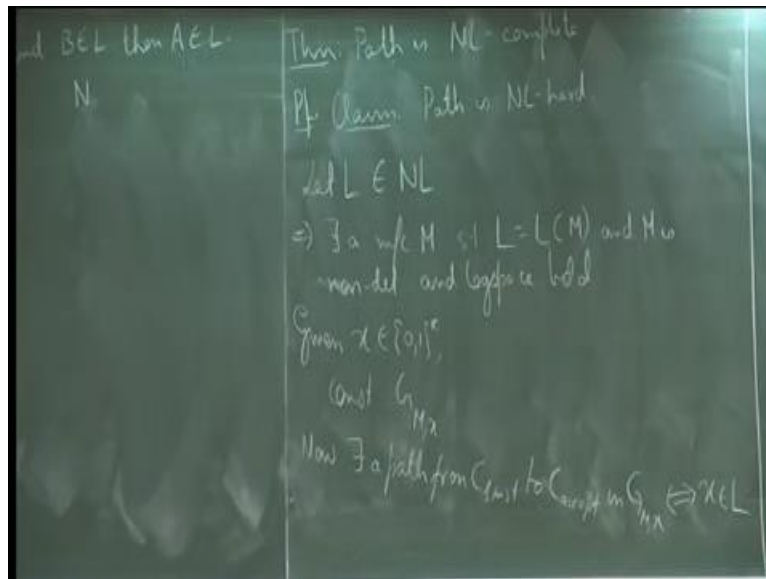 and B∈L then A∈L.
N
Thm: Path is NL-complete
Pf. Claim: Path is NL-hard.
Let L ∈ NL
⇒ ∃ a m/c M st L = L(M) and M is
non-det and logspace bdd
Given x ∈ {0,1}*,
const G_{M,x}
Now ∃ a path from C_{start} to C_{accept} in G_{M,x} ⇔ x∈L